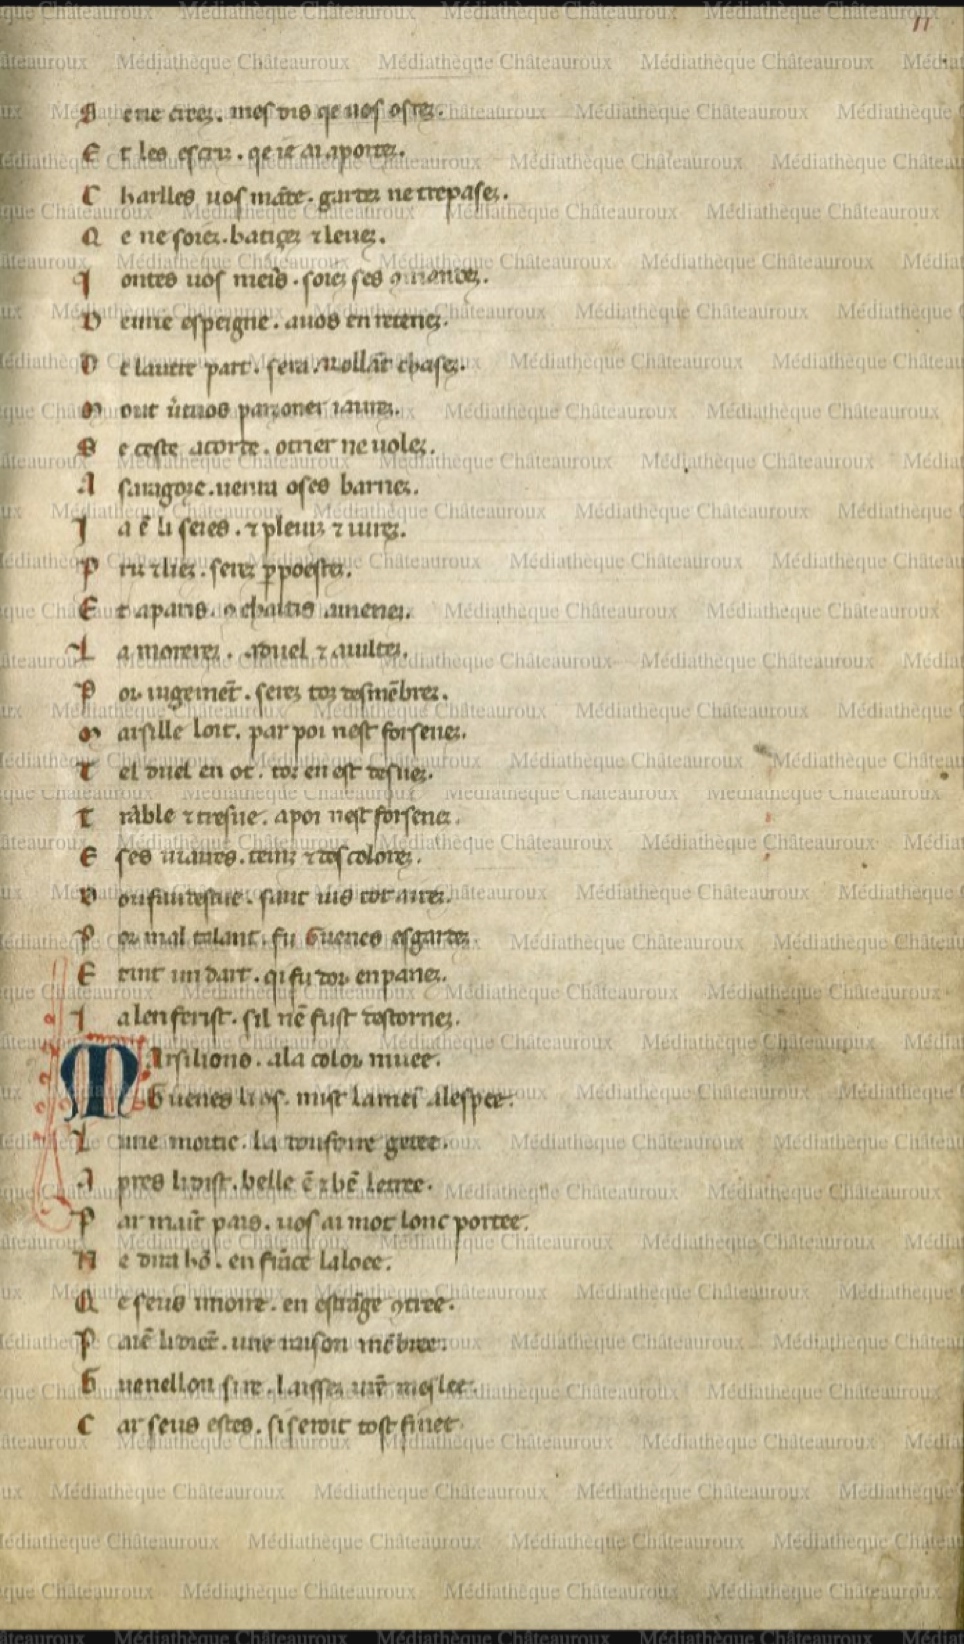 11
S ene creez. mes dis qe uos osez.
E t les escriz. qe ie ai aportez.
C harlles uos mãde. gardez ne trepasez.
Q e ne soiez. batigez ⁊ leuez.
I ontes uos meis. soiez ses ꝯmandez.
D emie espeigne. auos en retenez.
D e lautre part. sera. rollãt chasez.
M out
S e ceste acorde. otrier ne uolez.
A saragoze. uenra o ses barnez.
I a ẽ li seies. ⁊ pleuiz ⁊ iurez.
P ris ⁊ liez. serez p̲ poestez.
E t aparis. menez.
L a morerez. aduel ⁊ auiltez.
P or iugemẽt. serez toz desmẽbrez.
M arsille loit. par poi nest forsenez.
T el duel en ot. toz en est desuez.
T rãble ⁊ tresue. a poi nest forsenez.
E ses uiaires. teinz ⁊ descolorez.
D ou faudestue. saut
P or mal talant. fu Guenes esgardez
E tint un dart. qi fu dor enpanez.
I a len ferist. sil nẽ fust destornez.
M Arsilions. a la color muee.
G uenes li os. mist la mei a lespee.
L une moitie. la toufors getee.
A pres li dist. belle ẽ ⁊ bẽ letree.
P ar maĩt païs. uos ai mot lonc portee.
N e dira hõ. en frãce la loee.
Q e seus moire. en estrãge ꝯtree.
P aiẽ li diẽt. une raison mẽbree.
G uenellon sire. laissez ur̃e meslee.
C ar seus estes. si seroit tost finee
Médiathèque Châteauroux